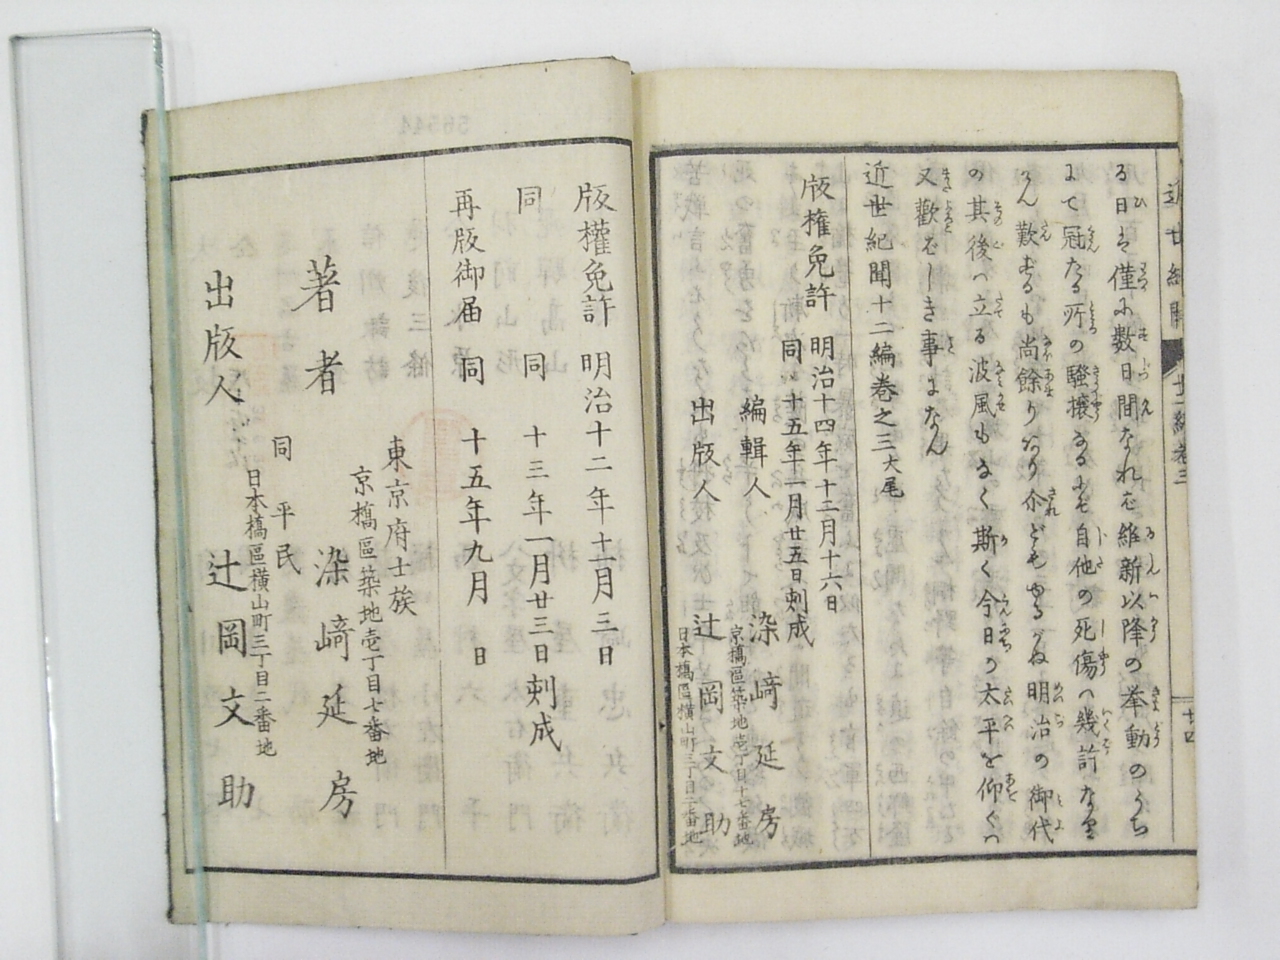 近世紀聞
十二編巻三
る日そ僅に数日間なれど維新以降の挙動のうち
にて冠たる所の騒擾なるにぞ自他の死傷ハ幾許なり
けん歎するも尚餘りあり尒どもゆるがぬ明治の御代
の其後ハ立る波風もなく斯く今日の太平を仰ぐハ
又歡ばしき事になん
近世紀聞十二編巻之三大尾
版権免許 明治十四年十二月十六日
同 十五年一月廿五日刺成
編輯人 染﨑延房
京橋區築地壱丁目十七番地
出版人 辻岡文助
日本橋區横山町三丁目二番地
十四
版權免許 明治十二年十二月三日
同 同 十三年一月廿三日刺成
再版御届 同 十五年九月 日
著者
東京府士族
京橋區築地壱丁目七番地
染﨑延房
出版人
同 平民
日本橋區横山町三丁目二番地
辻岡文助